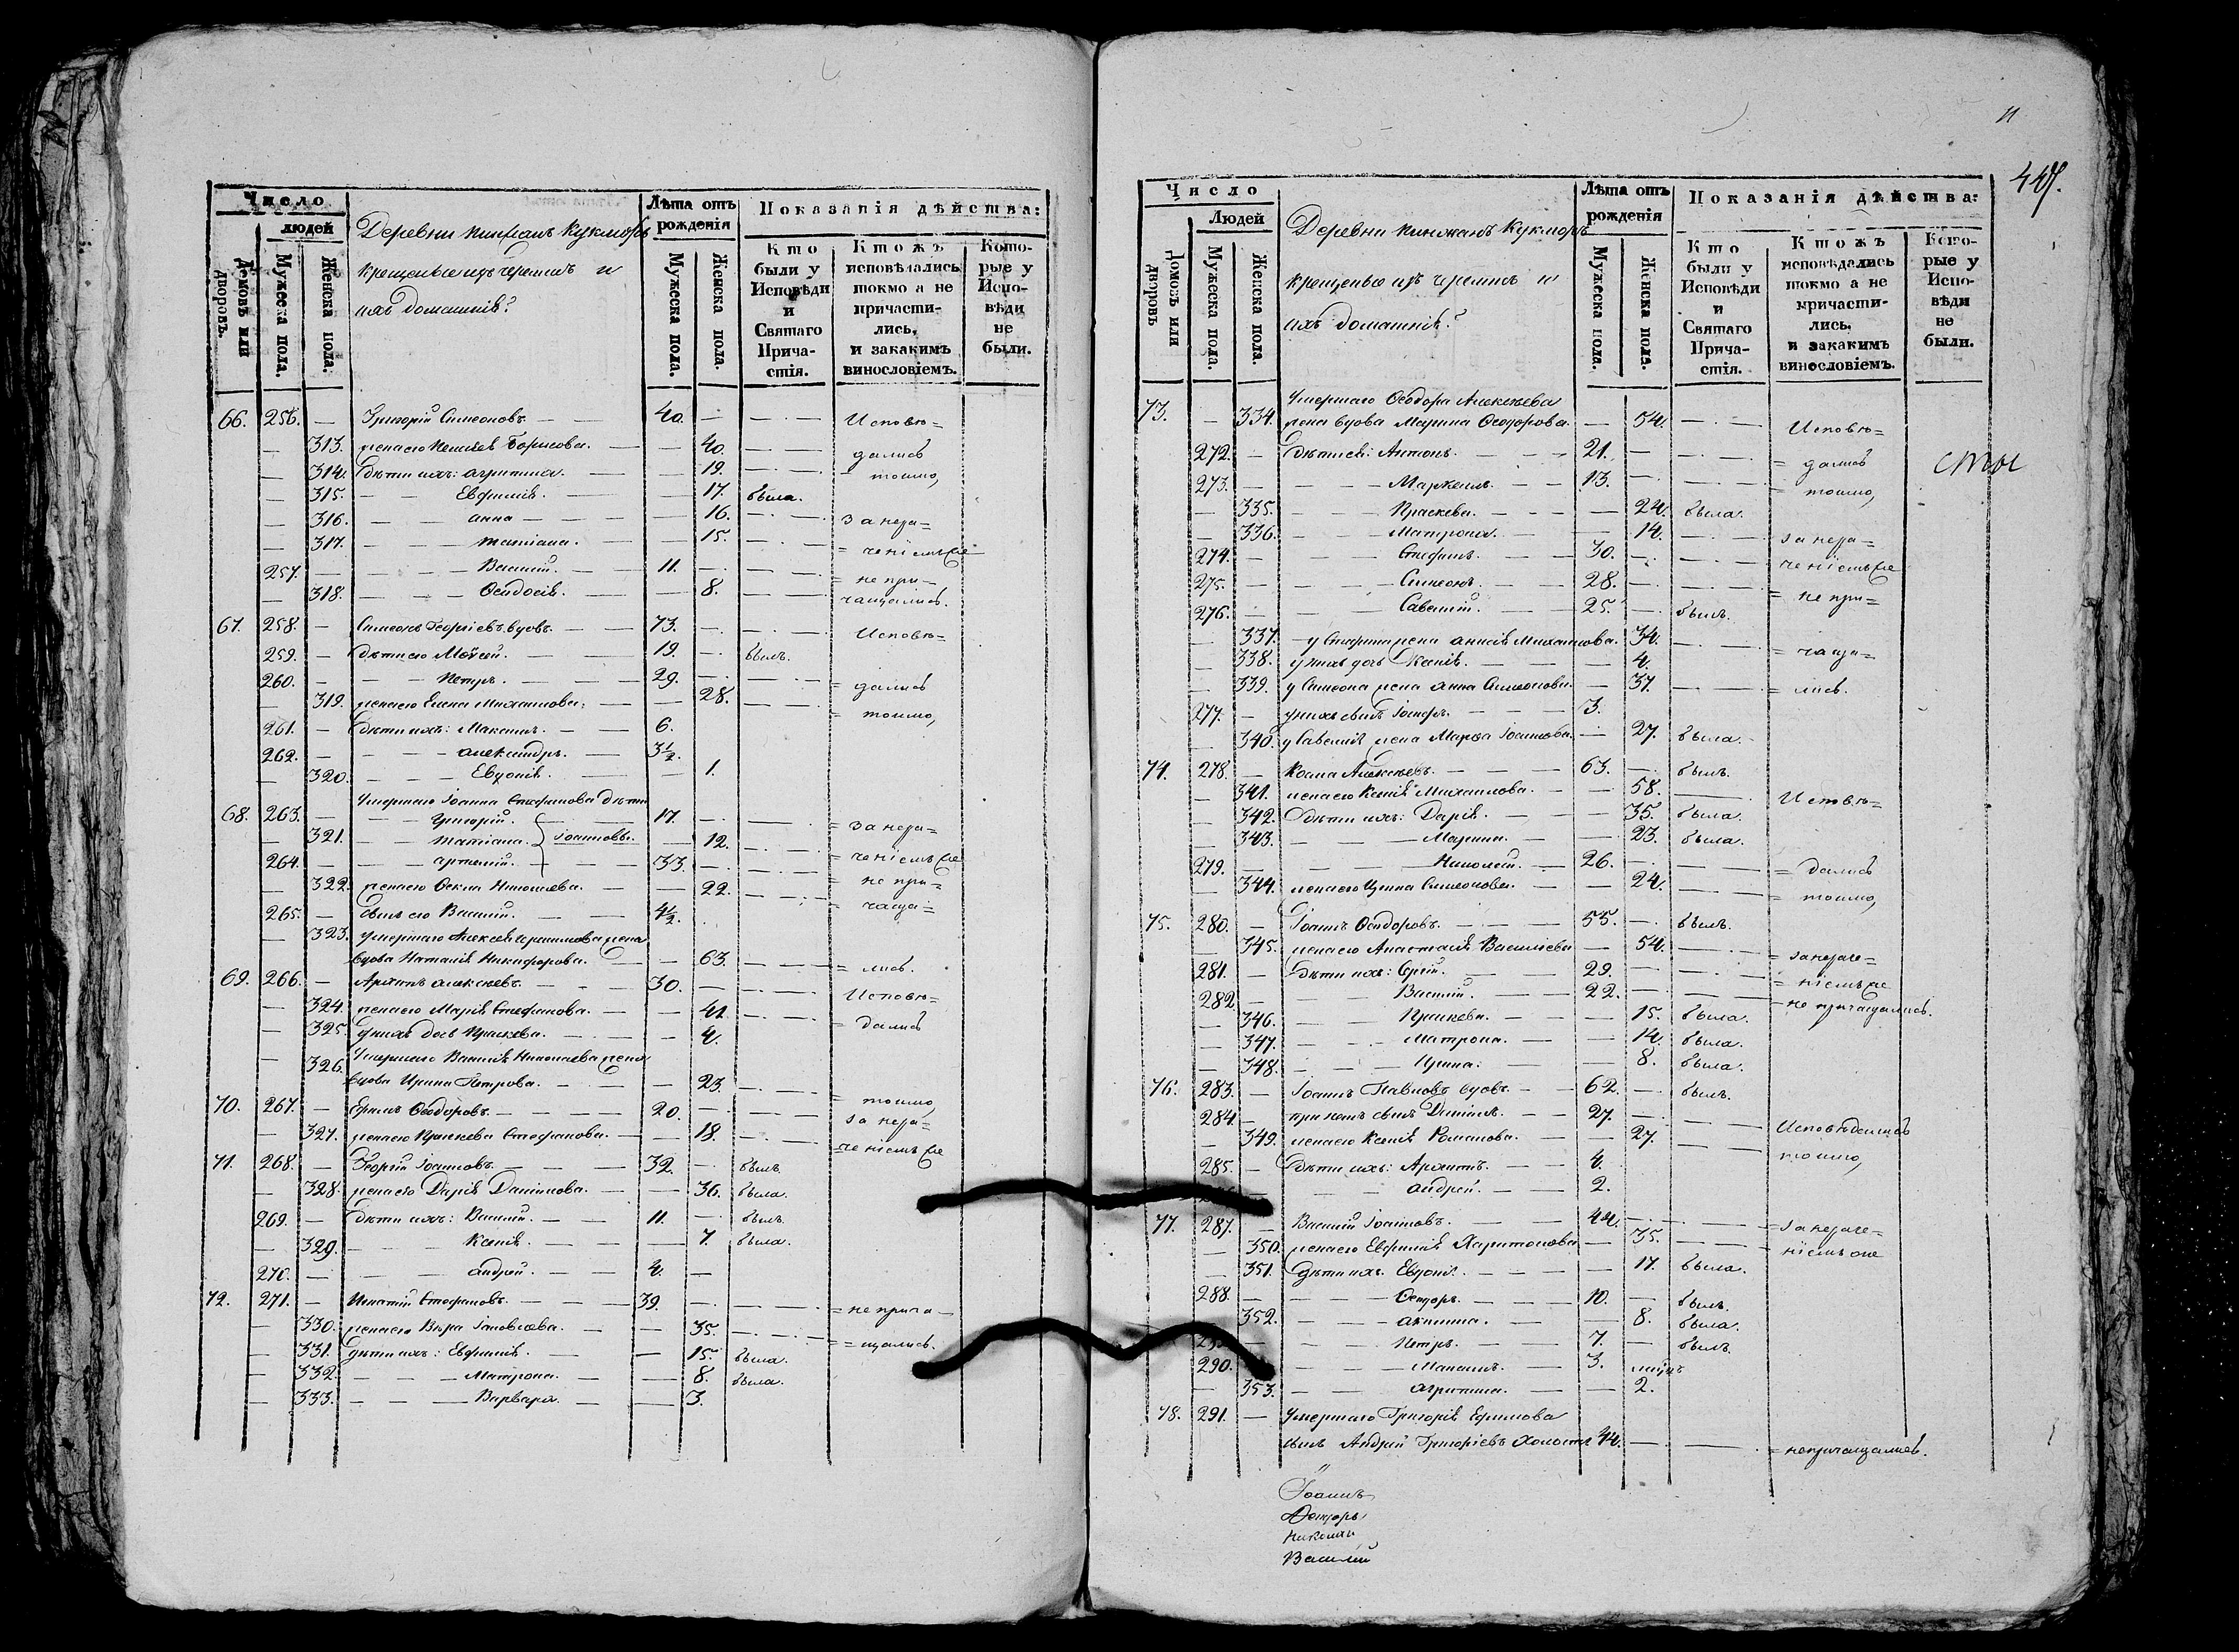 Число
людей
Домовъ или дворовъ.
Мужеска пола.
Женска пола.
Деревни Кинжанъ Кукморъ
крещеные изъ черемисъ и
ихъ домашнія
Лѣта отъ рождения
Мужеска пола.
Женска пола.
Показанія дѣйства:
Кто были у Исповѣди и Святаго Причастія.
Ктожъ исповѣдались токмо а не причастились, и закакимъ винословіемъ.
Которые у Исповѣди не были.
66. 256. — Григорій Симеоновъ — 40. — Исповѣ=
— 313. жена его Борисова. — 40. — дались
— 314. дѣти ихъ: Агрипина. — 19. — = токмо,
— 315. — Евфимія. — 17. была.
— 316. — Анна — 16. — за нера=
— 317. — Татіана. — 15. — = ченіемъ
257. — Василій. — 11. — = не при=
— 318. — Ѳеодосія. — 8. — чащались.
67. 258. — Симеонъ Георгіевъ вдовъ. — 73. — Исповѣ=
259. — дѣти его Моѵсей. — 19. — былъ.
260. — Петръ. — 29. — = дались
— 319. жена его Елена Михаилова. — 28. — = токмо,
261. — дѣти ихъ: Максимъ. — 6.
262. — Александръ. — 3½
— 320. — Евдокія. — 1.
Умершаго Іоанна Стефанова дѣти
68. 263. — Григорій. — 17. — = за нера=
— 321. — Татіана. } Іоанновы. — 12. — = ченіемъ
264. — Артемій. — 33. — = не при=
— 322. жена его Ѳекла Николаева. — 22. — = чаща=
265. — сынъ его Василій. — 4½
— 323. умершаго Алексѣя жена
вдова Наталія Никифорова. — 63. — = лись.
69. 266. — Архипъ Алексѣевъ. — 30. — Исповѣ=
— 324. жена его Марія Стефанова. — 41. — = дались
— 325. у нихъ дочь Праскева. — 4.
— 326. Умершаго Василія Николаева жена
вдова Ирина Петрова. — 23. — = токмо,
70. 267. — Ѳеодоровъ. — 20. — за нера=
— 327. жена его Праскева Стефанова. — 18. — = ченіемъ
71. 268. — Георгій Іоанновъ. — 32. — былъ
— 328. жена его Дарія Даніилова. — 36. была.
269. — дѣти ихъ: Василій. — 11. — былъ.
— 329. — Ксенія. — 7. была.
270. — Андрей. — 4. —
72. 271. — Игнатій Стефановъ. — 39. — = не прича=
— 330. жена его Вѣра Іаковлева. — 35. — = щались.
— 331. дѣти ихъ: Евфимія. — 15. была.
— 332. — Матрона. — 8. была.
— 333. — Варвара. — 3.
Число
Людей
Домовъ или дворовъ
Мужеска пола.
Женска пола.
Деревни Кинжанъ Кукморъ
крещеные изъ черемисъ и
ихъ домашнія
Лѣта отъ рожденія
Мужеска пола.
Женска пола.
Показанія дѣйства:
Кто были у Исповѣди и Святаго Причастія.
Ктожъ исповѣдались токмо а не причастились, и закакимъ винословіемъ.
Которые у Исповѣди не были.
Умершаго Ѳеодора Алексѣева
73. — 334. жена вдова Марина Ѳеодорова. — 54. — Исповѣ=
272. — дѣти ея: Антонъ. — 21. — = дались
273. — Маркеллъ. — 13. — = токмо,
— 335. — Праскева. — 24. была.
— 336. — Матрона. — 14. — за нера=
274. — Стефанъ. — 30. — ченіемъ
275. — Симеонъ. — 28. — = не при=
276. — Савелій. — 25. — былъ.
— 337. — у Стефана жена Анисія Михаилова. 34. — = чаща=
— 338. у нихъ дочь Ксенія. — 4.
— 339. у Симеона жена Анна Симеонова. — 37. — = лись.
277. — у нихъ сынъ Іосифъ. — 3.
— 340. у Савелія жена Марѳа Іоаннова. — 27. была.
74. 278. — Козма Алексѣевъ. — 63. — былъ.
— 341. жена его Ксенія Михаилова. — 58. — Исповѣ=
— 342. дѣти ихъ: Дарія. — 35. была.
— 343. — Марина. — 23. была.
279. — Николай. — 26. — = дались
— 344. жена его Ирина Симеонова. — 24. — = токмо,
75. 280. — Іоаннъ Ѳеодоровъ. — 55. — былъ.
— 345. жена его Анастасія Василіева — 54. — = за нераче=
281. — дѣти ихъ: Сергій. — 29. — = ніемъ
282. — Василій. — 22. — = не причащались.
— 346. — Праскева. — 15. была.
— 347. — Матрона. — 14. была.
— 348. — Ирина. — 8. была.
76. 283. — Іоаннъ Павловъ вдовъ. — 62. — былъ.
284. — при немъ сынъ Даніилъ. — 27. — Исповѣдались
— 349. жена его Ксенія Романова. — 27. — токмо,
285. — дѣти ихъ: Архипъ. — 4.
— Андрей. — 2.
77. 287. — Василій Іоанновъ. — 44. — = за нераче=
— 350. жена его Евфимія Харитонова — 35. — = ніемъ
— 351. дѣти ихъ: Евдокія. — 17. была.
288. — Ѳеодоръ. — 10. — былъ.
— 352. — Акилина. — 8. была.
— Петръ. — 7. — былъ.
290. — 3.
— 353. — Агрипина. — 2.
78. 291. — Умершаго Григорія Ефимова
сынъ Андрей Григоріевъ холостъ 44. — = непричащались.
Іоаннъ
Ѳеодоръ
Николай
Василій